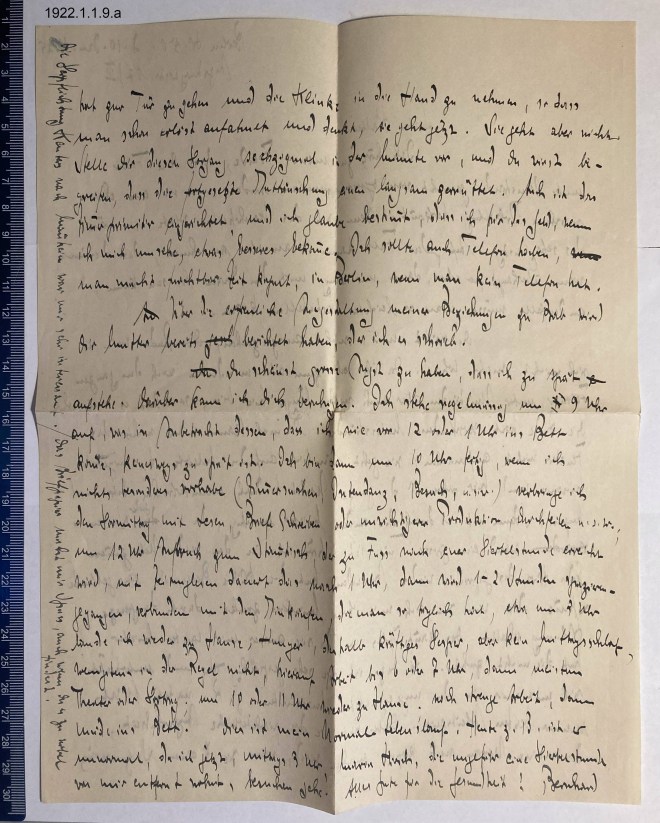 1922.1.1.9.a
hat zur Tür zu gehen und die Klinke in die Hand zu nehmen, so dass
man schon erlöst aufatmet und denkt, sie geht jetzt. Sie geht aber nicht
Stelle dir diesen Vorgang sechzigmal in der Minute vor, und du wirst be-
greifen, dass die fortgesetzte Enttäuschung einen langsam zerrüttet. Auch ist das
Zimmer primitiv eingerichtet und ich glaube bestimmt, dass ich für das Geld, wenn
ich mich umsehe, etwas besseres bekomme. Ich sollte auch Telefon haben,
man macht nachtbar Zeit kaputt, in Berlin, wenn man kein Telefon hat.
Über die erfreuliche Ausgestaltung meiner Beziehungen zu Brab wird
Dir Mutter bereits berichtet haben, der ich es schrieb.
Du scheinst grosse Angst zu haben, dass ich zu spät
aufstehe. Darüber kann ich dich beruhigen. Ich stehe regelmässig um 9 Uhr
auf, was in Anbetracht dessen, dass ich nie vor 12 oder 1 Uhr ins Bett
komme, keineswegs zu spät ist. Ich bin dann um 10 Uhr fertig, wenn ich
nichts besonderes vorhabe (Zimmersuchen, Intendanz, Besuch, u.s.w.) verbringe ich
den Vormittag mit Lesen, Briefe Schreiben oder Produktion, u.s.w.,
um 12 Uhr Aufbruch zum der zu Fuss nach einer Viertelstunde erreicht
wird, mit Zeitunglesen dauert das nach 1 Uhr, dann wird 1-2 Stunden spazieren-
gegangen, verbunden mit den Einkäufen, die man so täglich hat, etwa um 3 Uhr
lande ich wieder zu Hause, Hunger, deshalb kräftiges Vesper, aber kein Mittagsschlaf,
wenigstens in der Regel nicht, hierauf Arbeit bis 6 oder 7 Uhr, dann meistens
Theater oder Vortrag. um 10 oder 11 Uhr wieder zu Hause. noch strenge Arbeit, dann
müde ins Bett. Dies ist mein Normal Lebenslauf, Heute z. B. ist er
unnormal, da ich jetzt, mittags 3 Uhr Hirsch, die ungefähr eine Viertelstunde
von mir entfernt wohnt, besuchen gehe. Alles Gute für die Gesundheit! Bernhard
nach München war mir sehr interessant / Das Briefpapier macht mir Spass, auch wenn du es zu
findest.